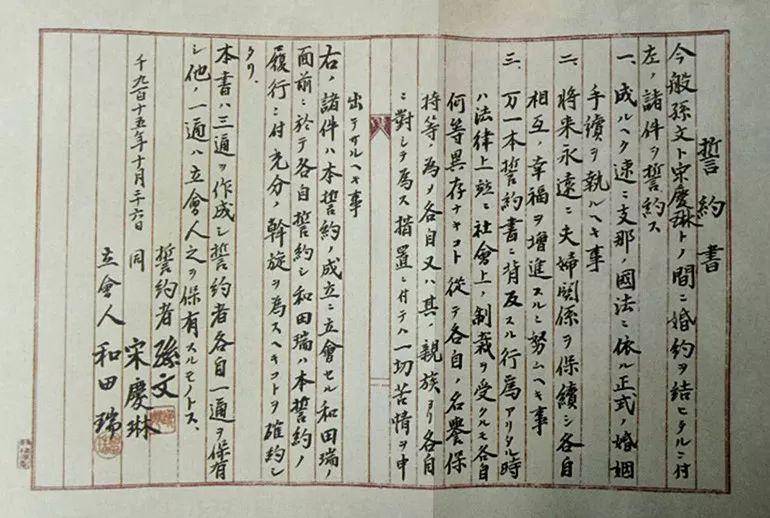 誓約書
今般孫文ト宋慶琳トノ間ニ婚約ヲ結ヒタルニ付
左ノ諸件ヲ誓約ス
一、成ルヘク速ニ支那ノ國法ニ依ル正式ノ婚姻
手續ヲ執ルヘキ事
二、將来永遠ニ夫婦関係ヲ保續シ各自
相互ノ幸福ヲ増進スルニ努ムヘキ事
三、万一本誓約書ニ背反スル行為アリタル時
ハ法律上竝ニ社會上ノ制裁ヲ受クルモ各自
何等異存ナキコト從テ各自ノ名譽保
持等ノ為メ各自又ハ其ノ親族ヨリ各自
ニ對シテ為ス措置ニ付テハ一切苦情ヲ申
出テサルヘキ事
右ノ諸件ハ本誓約ノ成立ニ立會セル和田瑞ノ
面前ニ於テ各自誓約シ和田瑞ハ本誓約ノ
履行ニ付充分ノ斡旋ヲ為スヘキコトヲ確約シ
タリ、
本書ハ三通ヲ作成シ誓約者各自一通ヲ保有
シ他ノ一通ハ立會人之ヲ保有スルモノトス、
誓約者 孫文
千九百十五年十月二十六日 同 宋慶琳
立會人 和田瑞